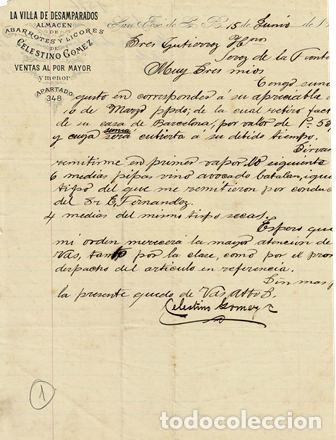 LA VILLA DE DESAMPARADOS
ALMACEN
DE
ABARROTES Y LICORES
DE
CELESTINO GOMEZ
VENTAS AL POR MAYOR
y menor
APARTADO
348
San José de C. R. 15 Junio de 1
Sres Gutierrez Hnos
Jerez de la Fronte
Muy Sres mios
Tengo sumo
gusto en corresponder á su apreciable
10 de Marzo ppdo; de la cual retiro fact
de su casa de Barcelona, por valor de
y cuya suma será cubierta á su debido tiempo.
Sirvan
remitirme en primer vapor lo siguiente
6 medias pipas vino avocado catalan, igual
tipo del que me remitieron por conduc
del Sr E. Fernandez.
4 medias del mismo tipo secas.
Espero que
mi orden merecerá la mayor atencion de
Vds, tanto por la clase, como por el pron
despacho del articulo en referencia.
Sin mas p
la presente quedo de Vds, Atto S.
Celestino Gomez
1
todocoleccion.net